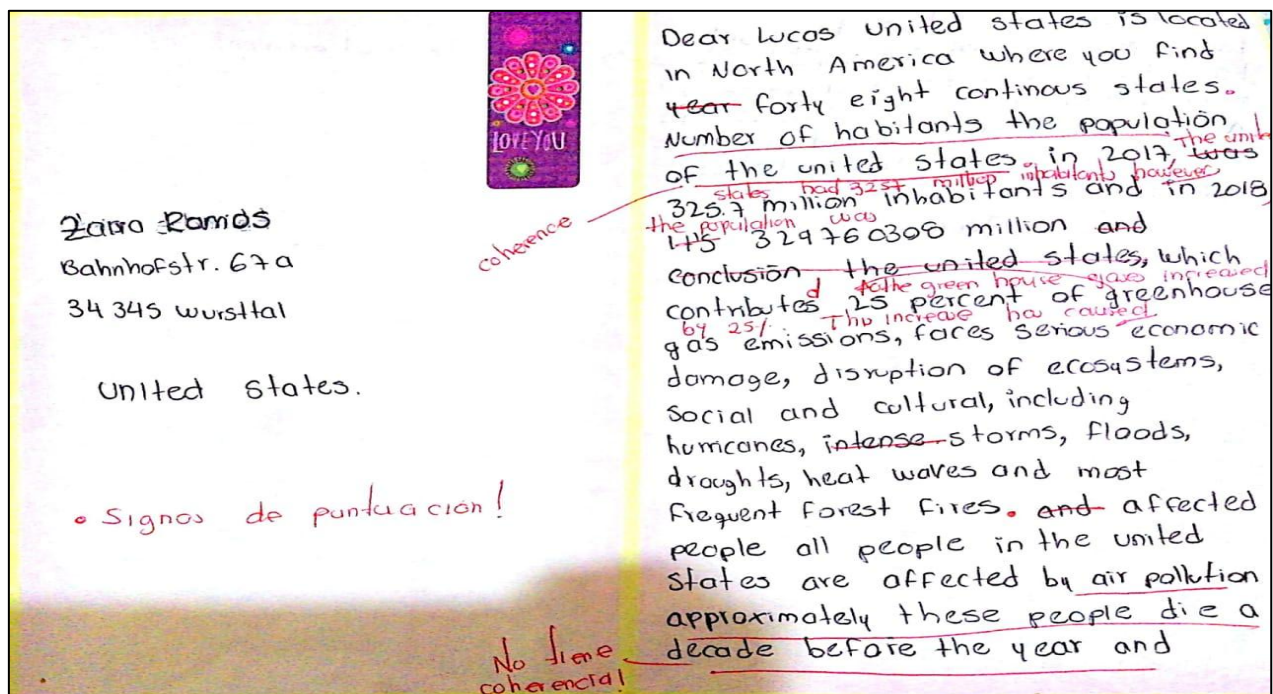 LOVE YOU
Ramos
Bahnhofstr. 67a
34 345 wursttal
United states.
• Signos de puntuación!
coherence
No tiene
coherencia!
Dear Lucas united states is located
in North America where you find
year forty eight continous states.
Number of habitants the population
The unite
of the united states. in 2017, was
states had 325.7 million inhabitants however
325.7 million inhabitants and in 2018,
the population was
its 329760308 million and
conclusion, the united states, which
d the green house gases increased
contributes 25 percent of greenhouse
by 25% This increase has caused
gas emissions, faces serious economic
damage, disruption of ecosystems,
social and cultural, including
hurricanes, intense storms, floods,
droughts, heat waves and most
frequent forest fires. and affected
people all people in the united
states are affected by air pollution
approximately these people die a
decade before the year and